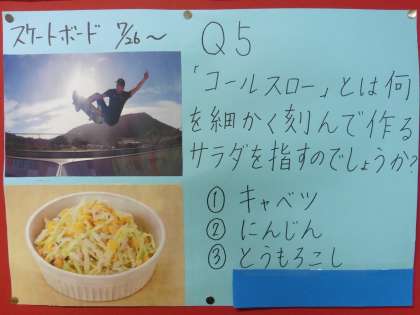 スケートボード 7/26～
Q5
「コールスロー」とは何
を細かく刻んで作る
サラダを指すのでしょうか?
① キャベツ
② にんじん
③ とうもろこし